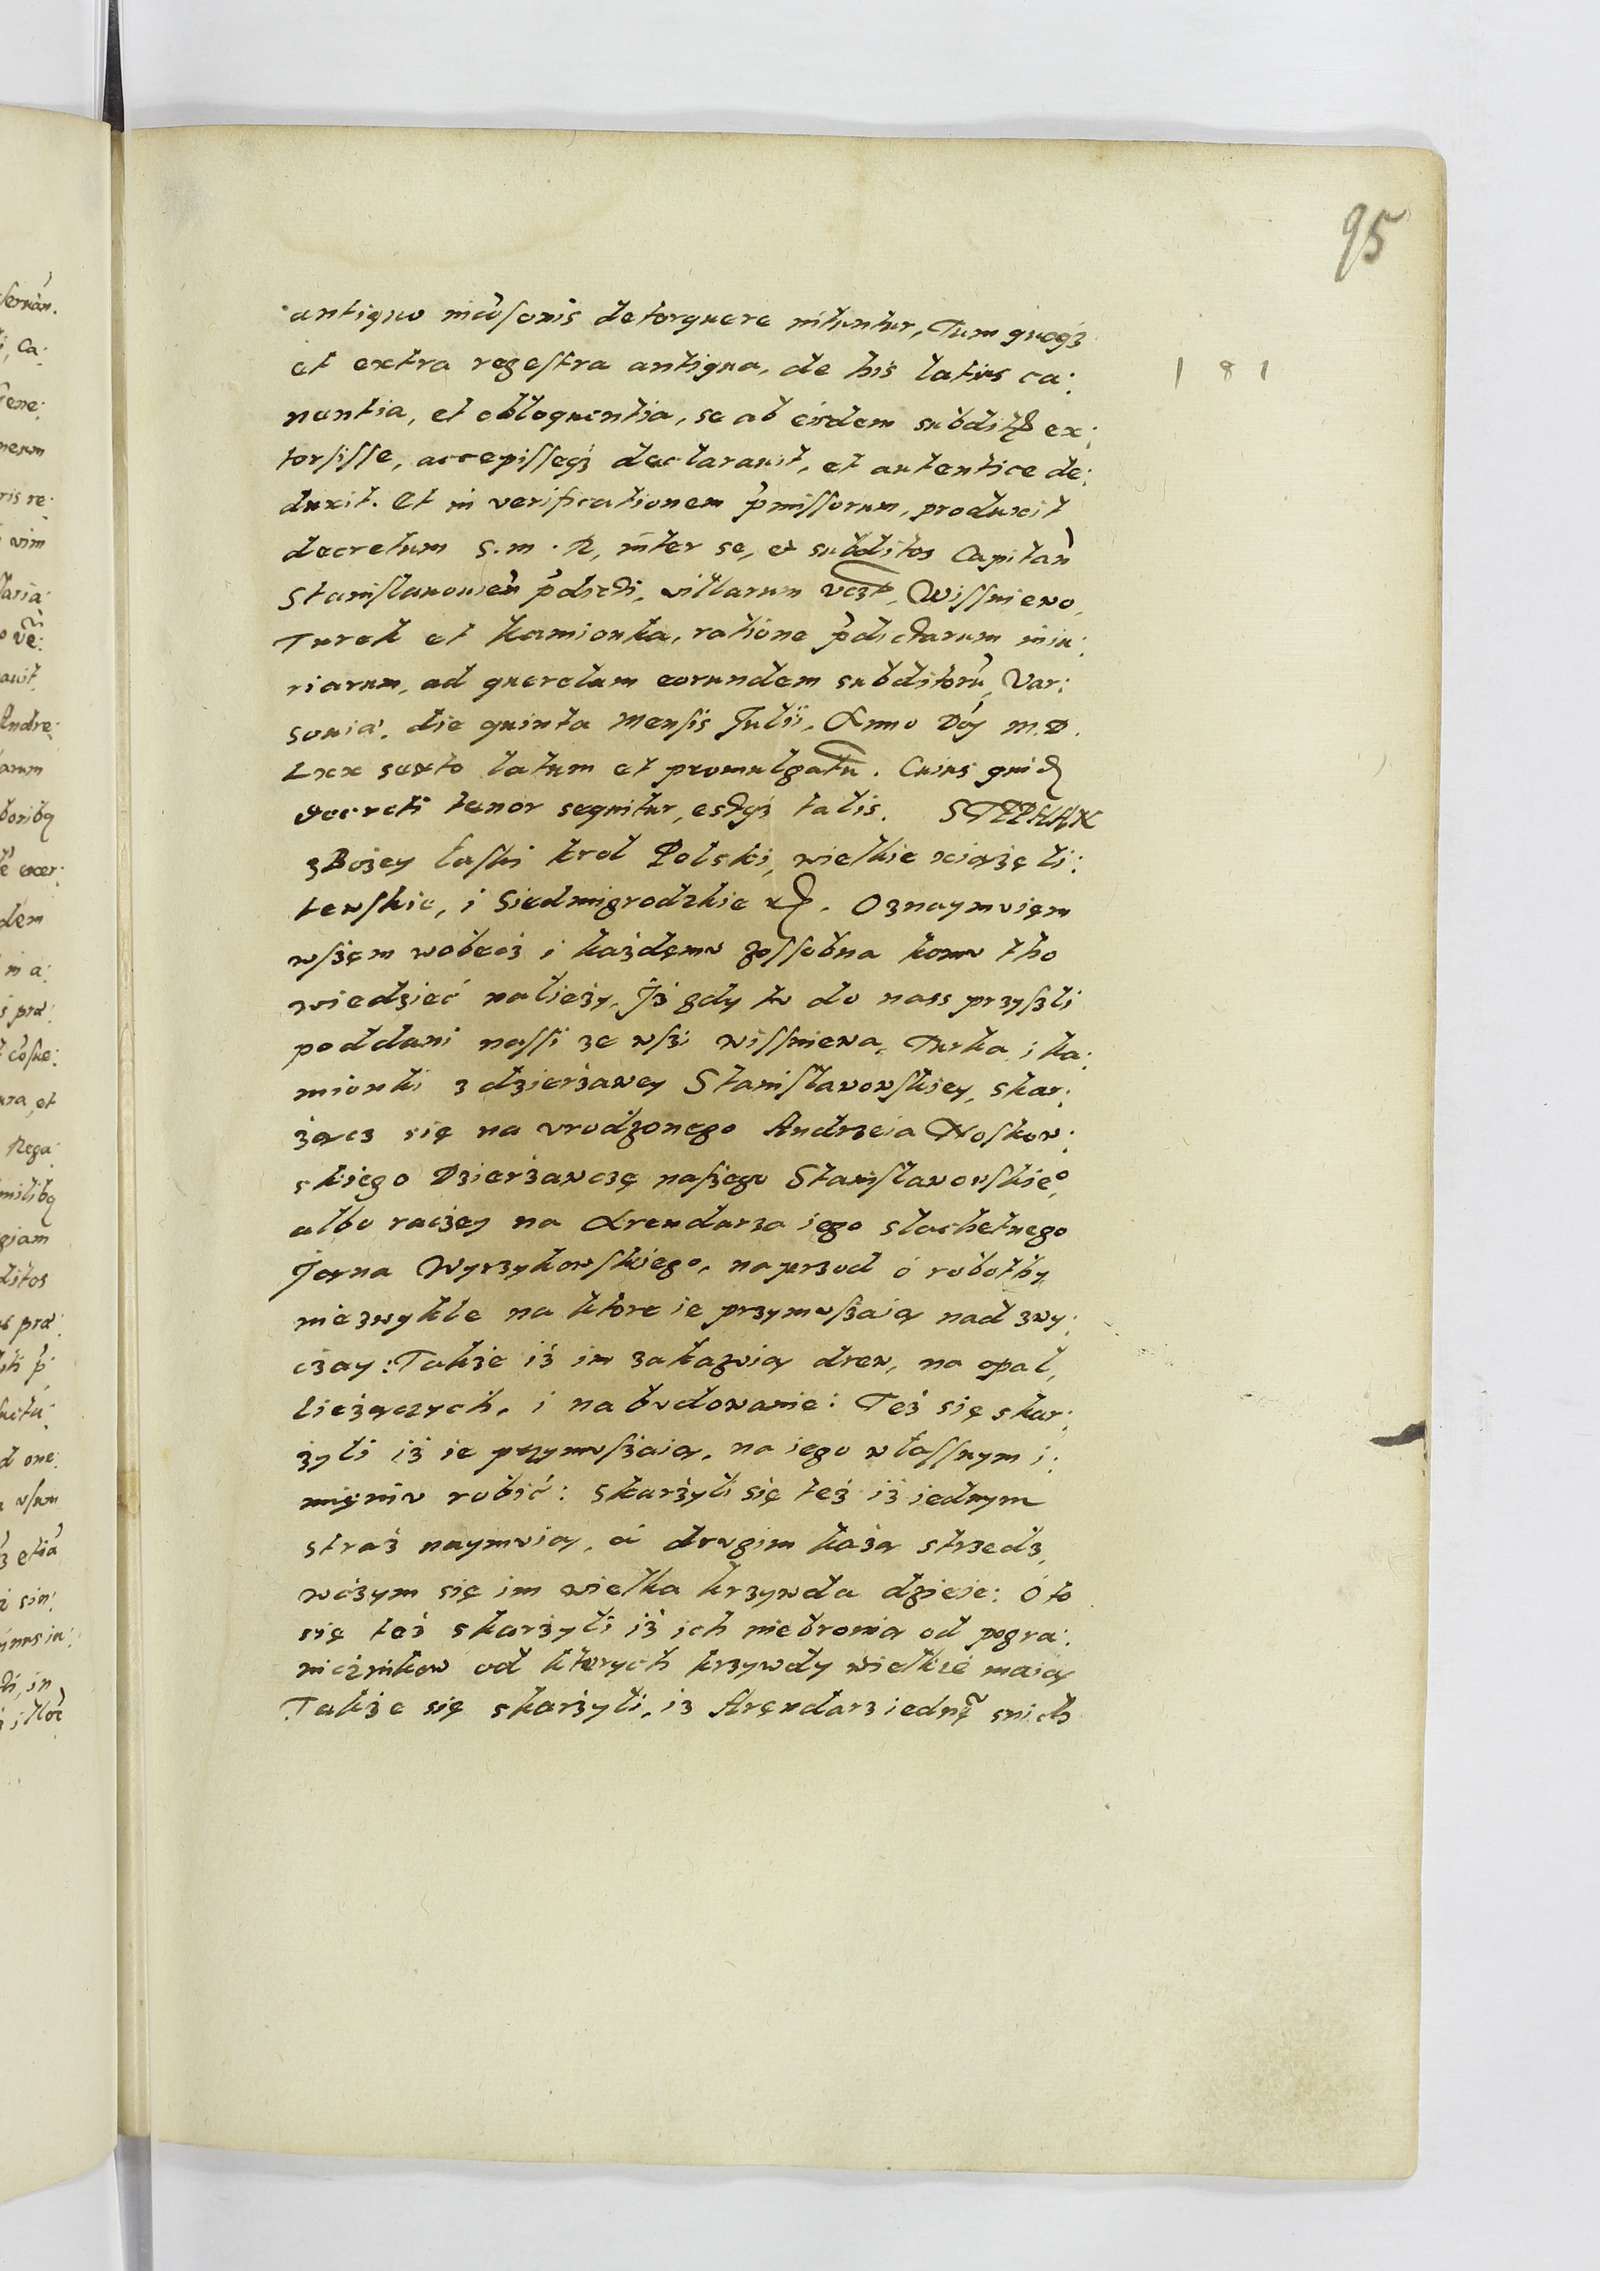 95
antiquo mẽsonis detorquere nituntur, Tum quoqз
et extra regestra antiqua, de his latius ca: 181
nentia, et obloquentia, se ab eisdem subditis ex:
torsisse, accepisseqз declarauit, et autentice de:
duxit. Et in verificationem p̃missorum, produxit
decretum S. m. R, inter se, et subditos Capitan̄
Stanislauouien̄ p̃dicti, villarum vczt, Wissniewo,
Turek et Kamionka, ratione p̃dictarum iniu:
riarum, ad querelam eorundem subditorũ, Var:
souiæ. die quinta Mensis Julii, Anno Dñj M.D.
Lxx sexto latum et promulgatũ. Cuius quid
decreti tenor sequitur, estqз talis. STEPHAN
z Bożey łaski krol Polski, wielkie xiążę li:
tewskie, i Siedmigrodzkie etc. Oznaymvięm
wszęm wobecz i każdęmv zossobna komv tho
wiedzieć należy, Jż gdy tv do nass przyszli
poddani nassi ze wsi wissniewa, Turka i ka:
mionki z dzierżawey Stanisławowskiey, skar:
żącz się na vrodzonego Andrzeia Noskow:
skiego Dzierżawczę naszego Stanisławowskieº,
albo raczey na Arendarza iego slachetnego
Jana Wyrzykowskiego, naprzod o robothy
niezwykłe na ktore ie przymvszaią nad zwy:
czay: Także iż im zakazvią drew, na opał,
lieżączych, i na bvdowanie: Też się skar:
żyli iż ie przymvszaią, na iego własnym i:
mięniv robić: Skarżyli się też iż iednym
straż naymvią, á drvgim każą strzedz,
wczym się im wielka krzywda dzieie: O to
się też skarżyli iż ich niebronią od pogra:
nicznikow od kterych krzywdy wielkié maią
Także się skarżyli, iz Aręndarz iednę̃ snich